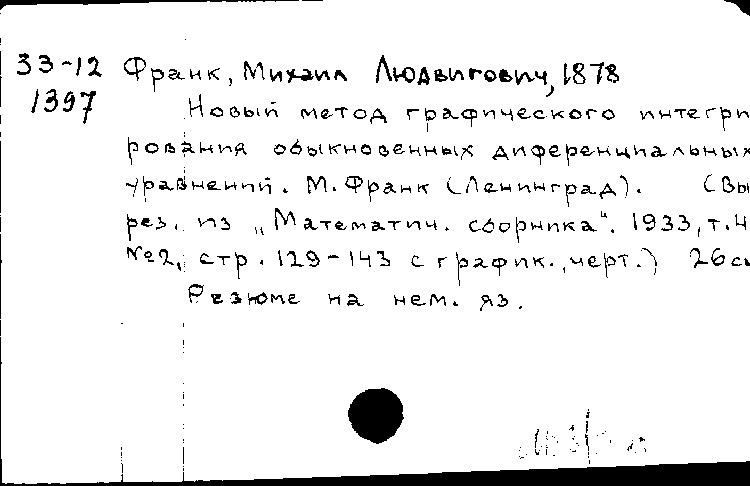 33-12 Франк, Михаил Людвигович, 1878
1397 Новый метод графического интегри
рования обыкновенных диференциальных
уравнений. М. Франк (Ленинград). (Вы
рез. из „Математич. сборника“. 1933, т. 4
№2, стр. 129-143 с график., черт.) 26 см
Резюме на нем. яз.